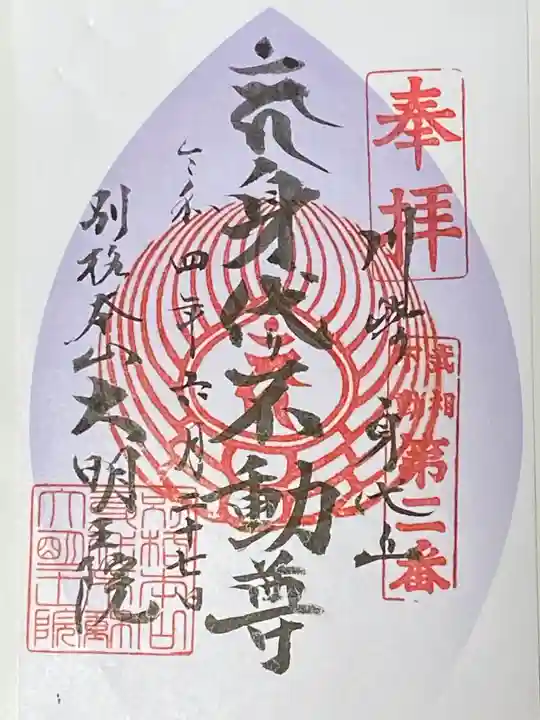 奉拝
武相
不動
第二番
川崎身代山
身代り不動尊
令和四年六月二十七日
別格本山大明王院